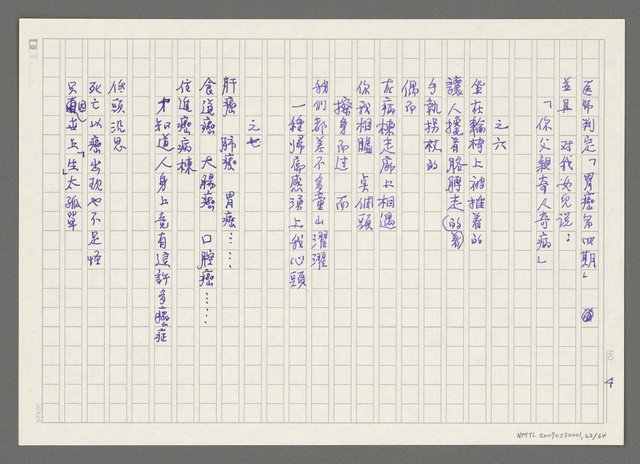 醫師判定「胃癌第四期」
並且 对我女兒說：
「你父親奇人奇病」
之六
坐在輪椅上被推着的
讓人攙着胳膊走(的着)
手執拐杖的
偶而
在病棟走廊上相遇
你我相貌 点個頭
擦身而过 而
我們都差不多童山濯濯
一種歸屬感湧上我心頭
之七
肝癌 肺癌 胃癌……
食道癌 大腸癌 口腔癌……
住進癌病棟
才知道人身上竟有這許多癌症
低頭沉思
死亡以癌出現也不足怪
只 世上「生」太孤單
NO.
4
NMTL 20090250001, 62/64